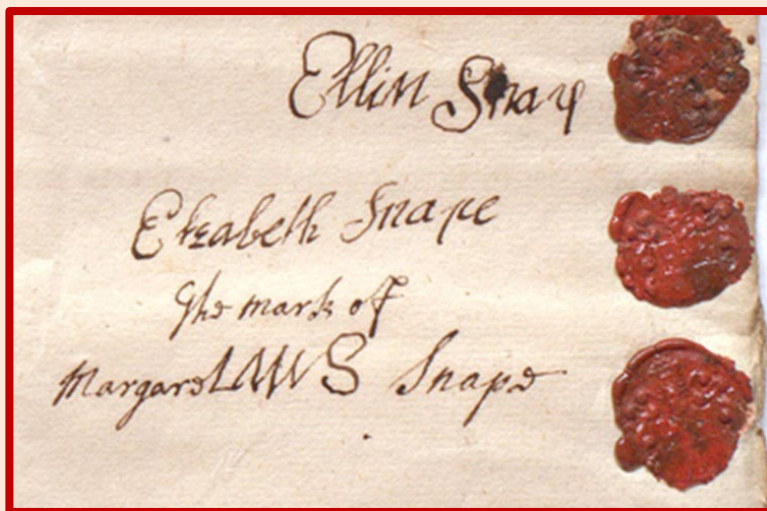 Ellin Snap
Elizabeth Snape
The mark of
Margaret MWS Snape